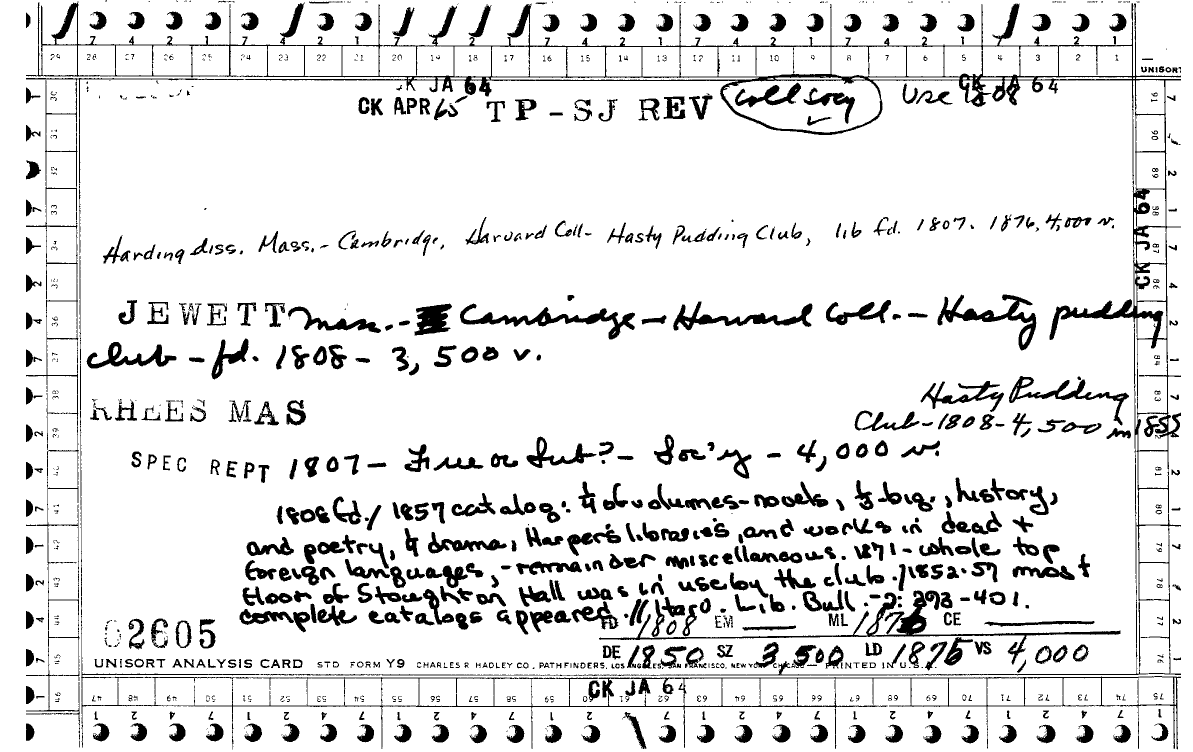 7 4 2 1 7 4 2 1 7 4 2 1 7 4 2 1 7 4 2 1 7 4 2 1 7 4 2 1
29 28 27 26 25 24 23 22 21 20 19 18 17 16 15 14 13 12 11 10 9 8 7 6 5 4 3 2 1
UNISORT
CK JA 64
CK JA 64
CK APR 65 TP-SJ REV Coll Socy Use 1808
CK JA 64
Harding diss. Mass.- Cambridge, Harvard Coll- Hasty Pudding Club, lib fd. 1807. 1876, 4,000 v.
JEWETT Mass.- Cambridge - Harvard Coll. - Hasty pudding
club - fd. 1808 - 3,500 v.
RHEES MAS
Hasty Pudding
Club-1808-4,500 in 1855
SPEC REPT 1807 - Free or Sub? - Soc'y - 4,000 v.
1808 fd./ 1857 catalog: 1/4 of volumes-novels, 1/3-big., history,
and poetry, 1/4 drama, Harper's libraries, and works in dead +
foreign languages, -remainder miscellaneous. 1871-whole top
floor of Stoughton Hall was in use by the club.//1852-57 most
complete catalogs appeared.// Harv. Lib. Bull.-2: 393-401.
FD 1808 EM — ML 1876 CE —
62605
DE 1850 SZ 3,500 LD 1875 VS 4,000
UNISORT ANALYSIS CARD STD FORM Y9 CHARLES R HADLEY CO., PATHFINDERS, LOS ANGELES, SAN FRANCISCO, NEW YORK, CHICAGO — PRINTED IN U.S.A.
CK JA 64